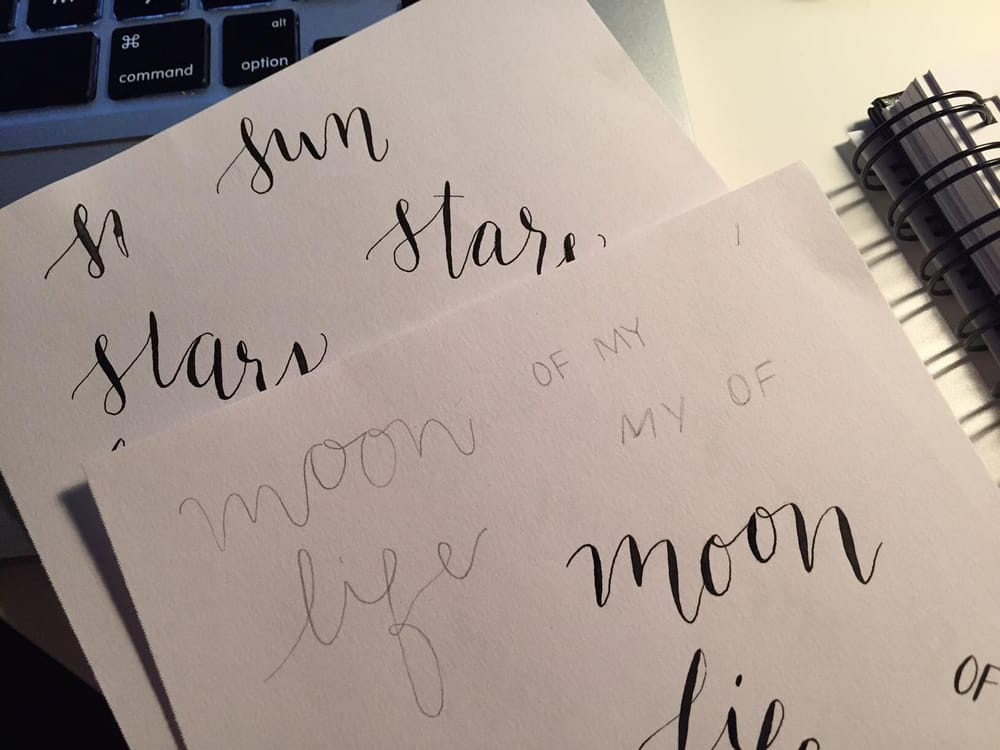 ⌘ alt
command option
sun
s
star
stars
OF MY
MY OF
moon
life
moon
OF